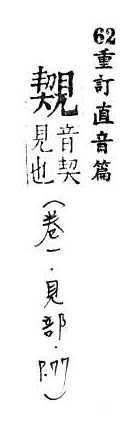 62重訂直音篇
音契
見也
(卷一·見部·P.77)